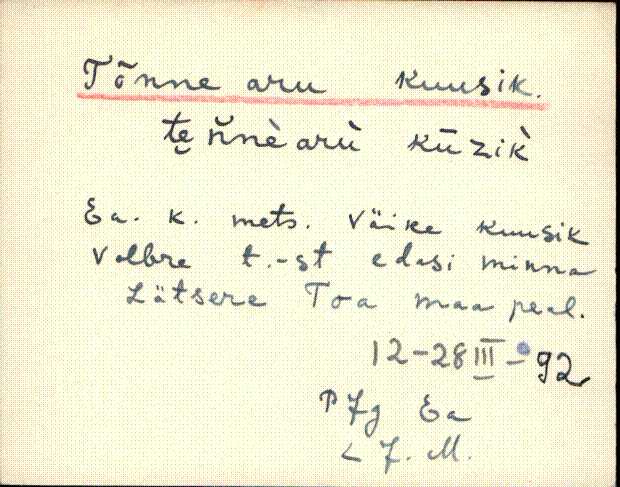 Tõnne aru kuusik.
te̮ň̀nèarù kūzik̀
Ea. k. mets. Väike kuusik
Volbre t.-st edasi minna
Lätsere Toa maa peal.
12-28 III - 92
Ea
< J. M.